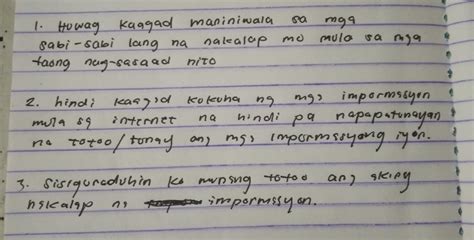 1. Huwag kaagad maniniwala sa mga
sabi-sabi lang na nakalap mo mula sa mga
taong nag-sasaad nito
2. hindi kaagad kukuha ng mga impormasyon
mula sa internet na hindi pa napapatunayan
na totoo/tunay ang mga impormasyong iyon.
3. Sisiguraduhin ko munang totoo ang aking
nakalap na impormasyon.